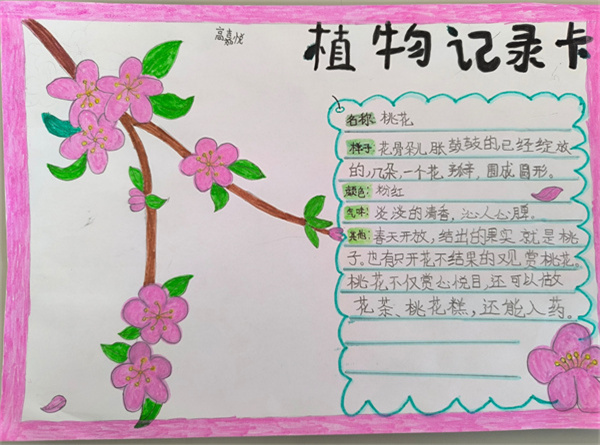 高嘉悦
植物记录卡
名称：桃花
样子：花骨朵儿胀鼓鼓的，已经绽放
的，几朵，一个花瓣，围成圆形。
颜色：粉红
气味：淡淡的清香，沁人心脾。
其他：春天开放，结出的果实就是桃
子。也有只开花不结果的观赏桃花。
桃花不仅赏心悦目，还可以做
花茶、桃花糕，还能入药。